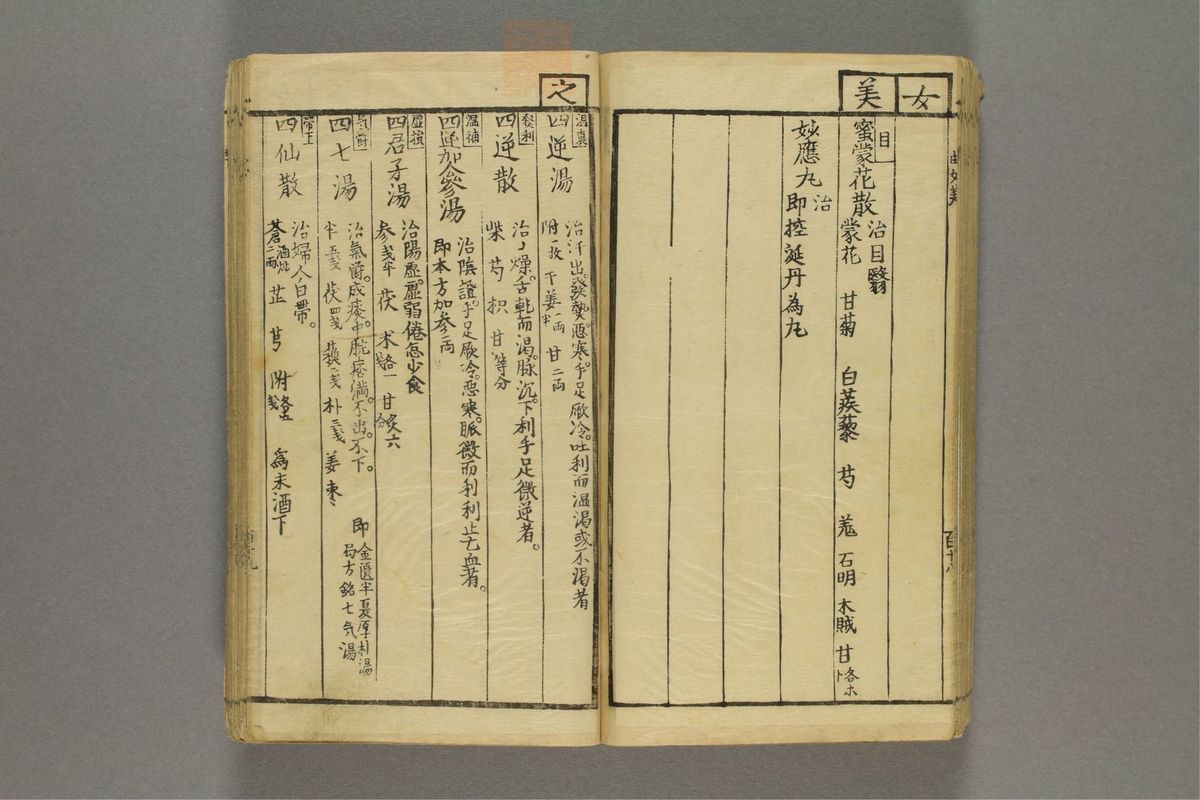 女
美
目
蜜蒙花散
治目翳
蒙花 甘菊 白蒺藜 芍 羗 石明 木賊 甘各ホ
妙應丸
治
即控涎丹為丸
之
温裏
四逆湯
治汗出。發熱。惡寒。手足厥冷。吐利而温渇或不渇者
附一枚 干姜一両半 甘二両
四逆散
治ヽ燥。舌乾而渇。脉沉。下利手足微逆者。
柴 芍 枳 甘等分
温補
四逆加人參湯
治陰證。手足厥冷。惡寒。脈微而利利止亡血者。
即本方加参一両
虚損
四君子湯
治陽虚。虚弱倦怠少食
参戔半 茯 朮各一戔 甘炙六分
気欝
四七湯
治氣欝。成痰。中脘痞満。不出。不下。
半五戔 茯四戔 蘓二戔 朴三戔 姜 棗
即金匱半夏厚朴湯
局方銘七気湯
帯下
四仙散
治婦人ノ白帯。
蒼二両酒炒 芷 芎 附各五戔 為末酒下